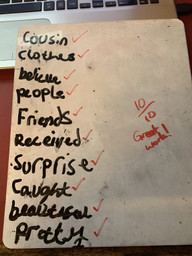 Cousin
clothes
believe
people
Friends
Received
Surprise
Caught
beautiful
Pretty
10/10
Great
work!